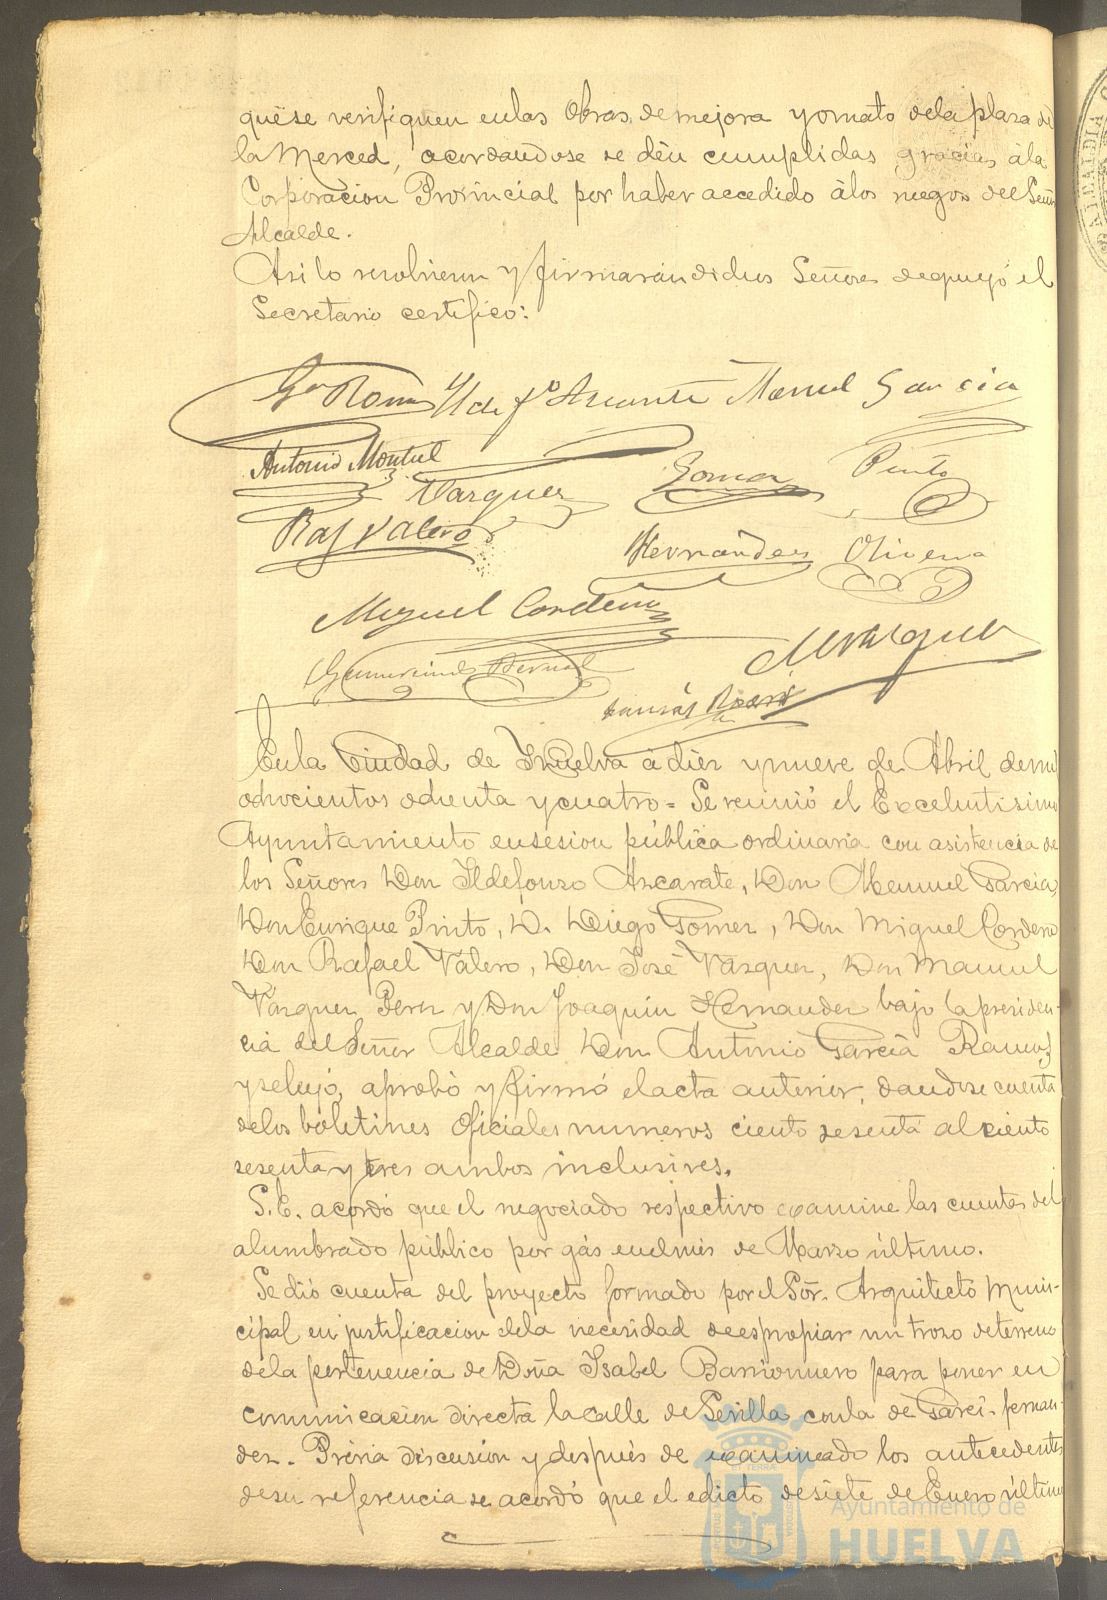 quese verifiquen enlas Obras de mejora y ornato dela plaza de
la Merced, acordandose se den cumplidas gracias àla
Corporacion Provincial por haber accedido àlos ruegos del Señor
Alcalde.
Asi lo resolvieron y firmarán dichos Señores deque yó el
Secretario certifico:
Ga Ramos Ildefo Azcarate Manuel Garcia
Antonio Montiel
Vazquez Gomez Pinto
Raf Valero
Hernandez Olivera
Miguel Cordero
MVazquez
Gumersindo Bernal
Enla Ciudad de Huelva à diez y nueve de Abril de mil
ochocientos ochenta y cuatro = Se reunió el Excelentisimo
Ayuntamiento en sesion pública ordinaria con asistencia de
los Señores Don Ildefonso Azcarate, Don Manuel Garcia,
Don Enrique Pinto, D. Diego Gomez, Don Miguel Cordero
Don Rafael Valero, Don José Vazquez, Don Manuel
Vazquez Perez y Don Joaquin Hernandez bajo la presiden-
cia del Señor Alcalde Don Antonio Garcia Ramos
y se leyó, aprobó y firmó el acta anterior, dandose cuenta
delos boletines Oficiales numeros ciento sesenta al ciento
sesenta y tres ambos inclusives.
S.E. acordó que el negociado respectivo examine las cuentas del
alumbrado público por gás en el mes de Marzo último.
Se dió cuenta del proyecto formado por el Sór. Arquitecto Muni-
cipal en justificacion dela necesidad de espropiar un trozo de terreno
dela pertenencia de Doña Isabel Barrionuevo para poner en
comunicacion directa la calle de Sevilla conla de Garci-fernan-
dez. Prévia discusion y después de examinado los antecedentes
de su referencia se acordó que el edicto de siete de Enero último
Ayuntamiento de
HUELVA